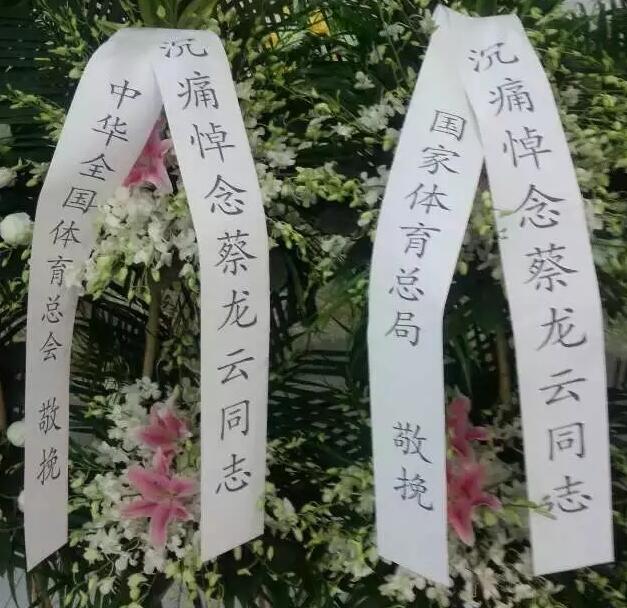 沉痛悼念蔡龙云同志
中华全国体育总会 敬挽
沉痛悼念蔡龙云同志
国家体育总局 敬挽